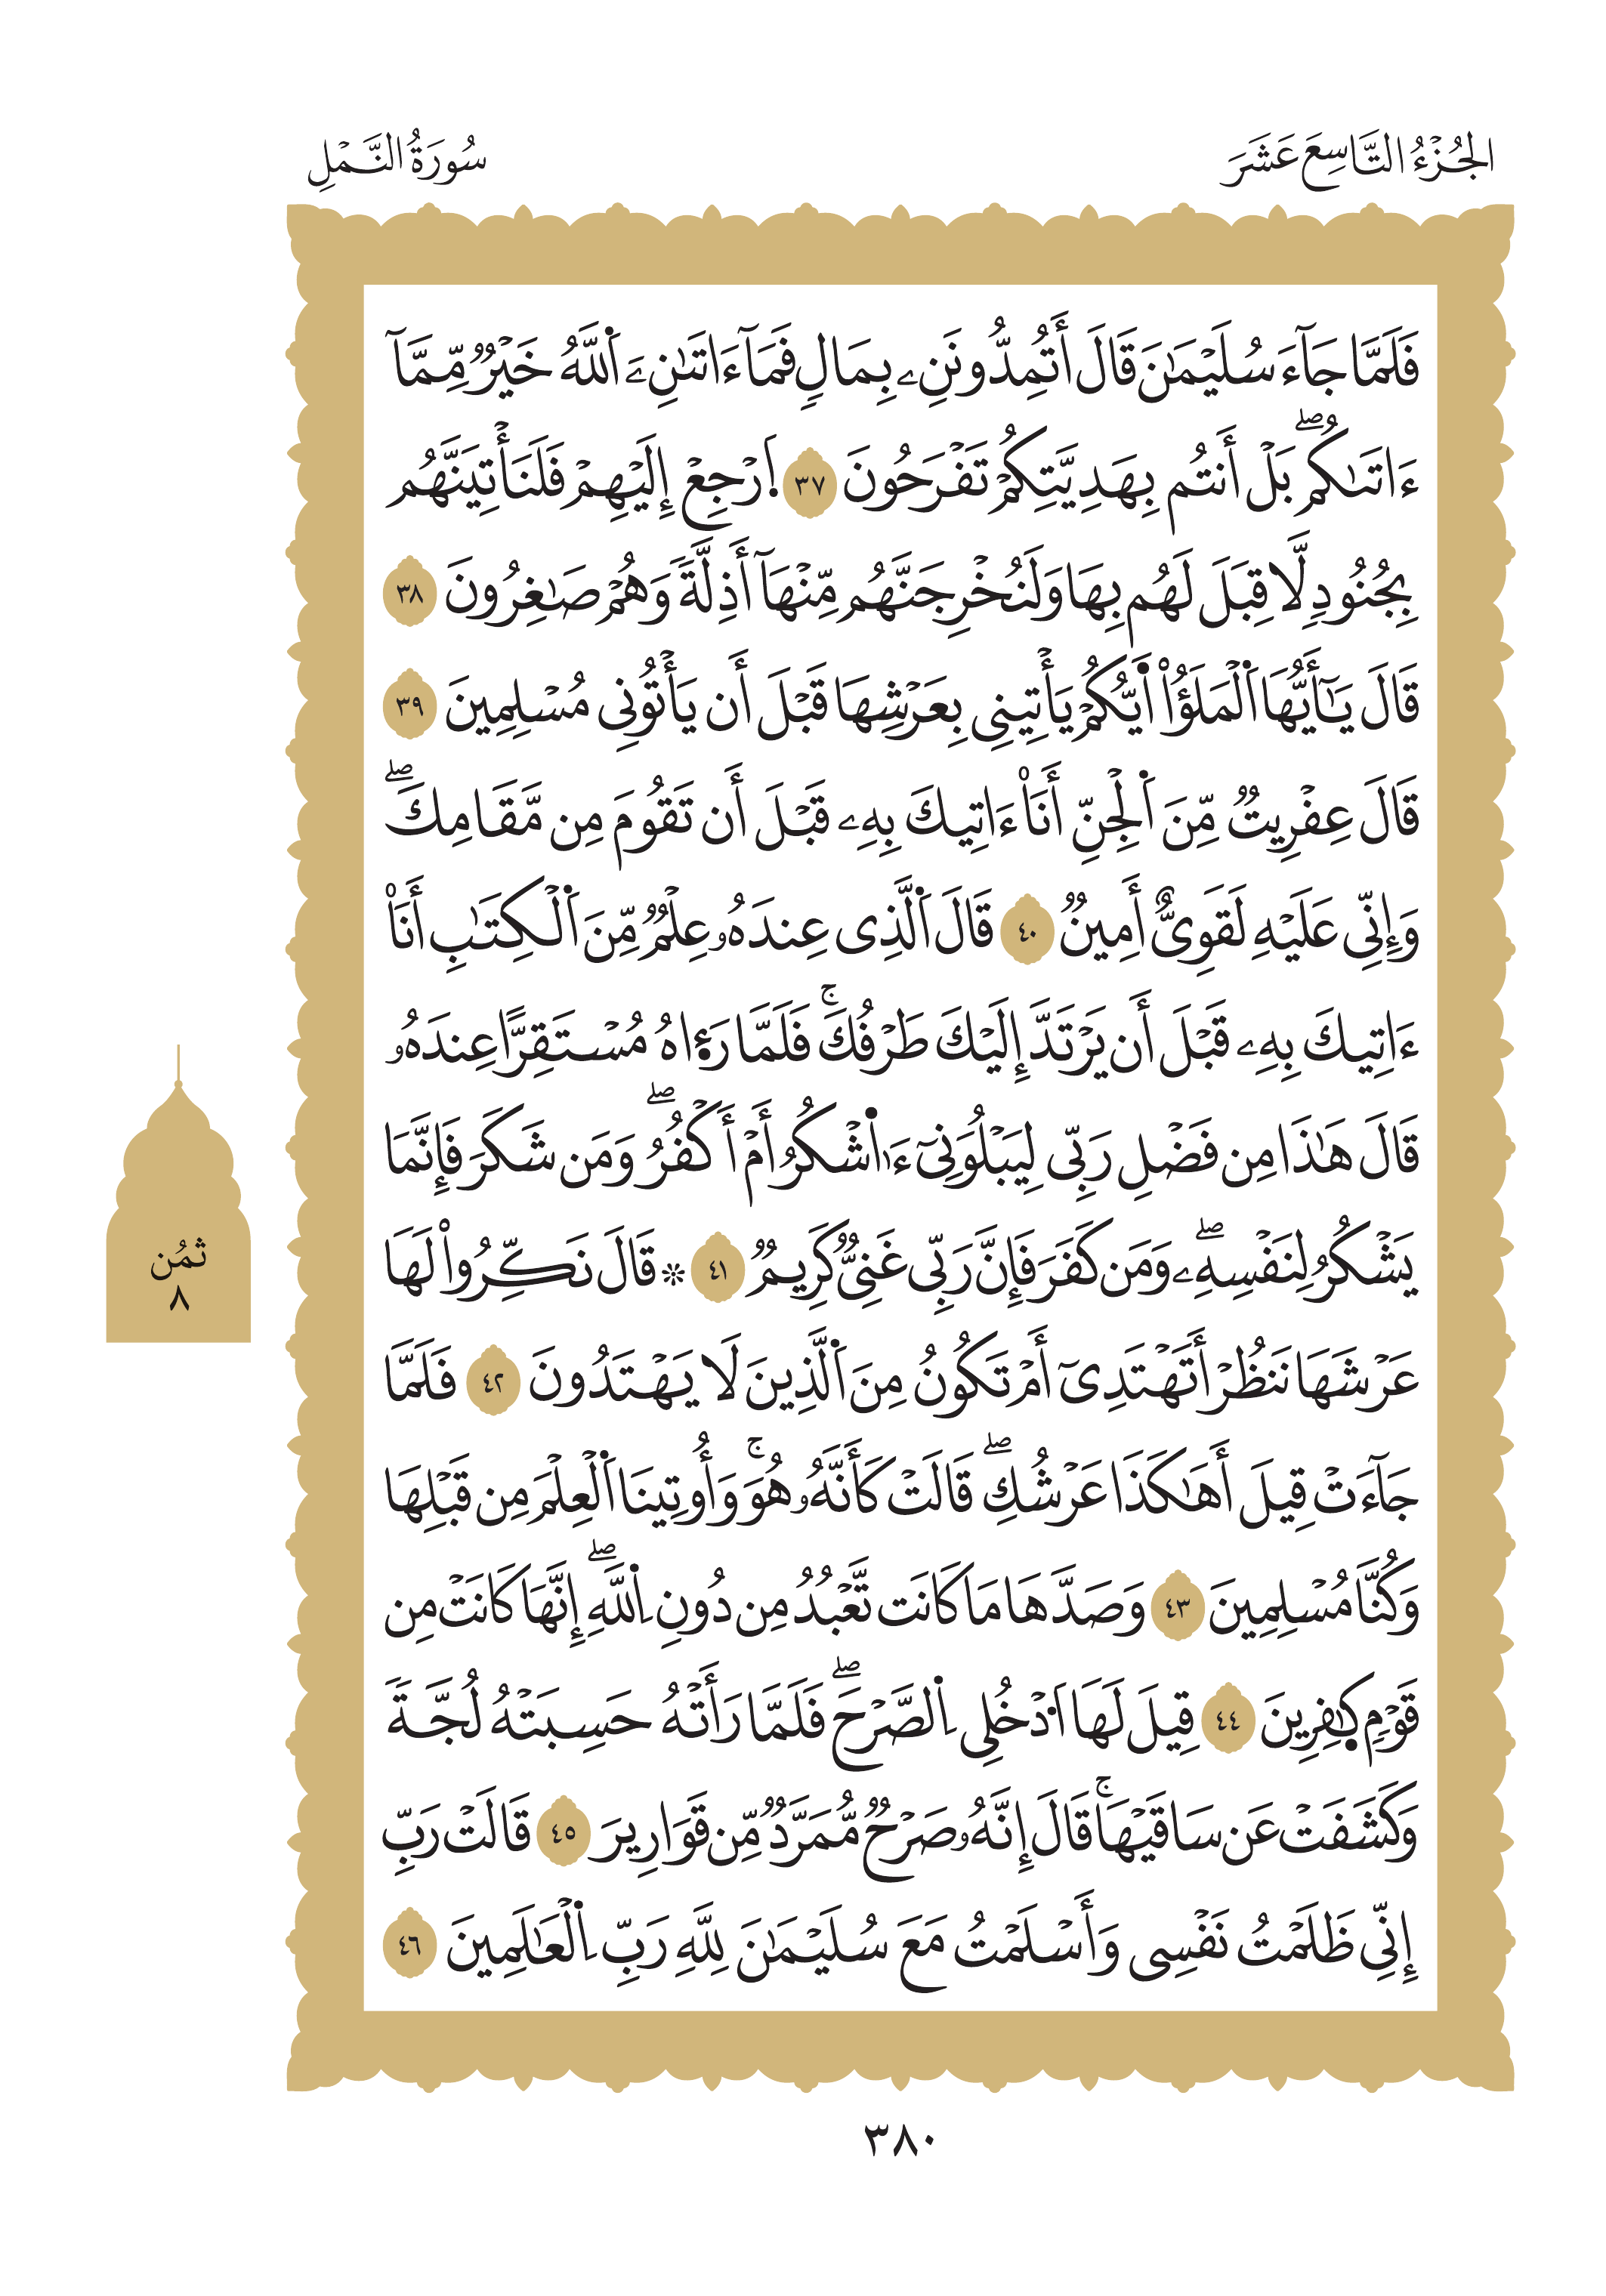 الجُزْءُ التَّاسِعَ عَشَرَ
سُورَةُ النَّمْلِ
فَلَمَّا جَآءَ سُلَيْمَٰنَ قَالَ أَتُمِدُّونَنِۦ بِمَالٍ فَمَآ ءَاتَىٰنِۦَ اَ۬للَّهُ خَيْرٞ مِّمَّآ
ءَاتَىٰكُمۖ بَلْ أَنتُم بِهَدِيَّتِكُمْ تَفْرَحُونَ ٣٧ اَ۪رْجِعْ إِلَيْهِمْ فَلَنَأْتِيَنَّهُم
بِجُنُودٖ لَّا قِبَلَ لَهُم بِهَا وَلَنُخْرِجَنَّهُم مِّنْهَآ أَذِلَّةٗ وَهُمْ صَٰغِرُونَ ٣٨
قَالَ يَٰٓأَيُّهَا اَ۬لْمَلَؤُاْ اَ۬يُّكُمْ يَأْتِينِى بِعَرْشِهَا قَبْلَ أَن يَأْتُونِى مُسْلِمِينَ ٣٩
قَالَ عِفْرِيتٞ مِّنَ اَ۬لْجِنِّ أَنَا۠ ءَاتِيكَ بِهِۦ قَبْلَ أَن تَقُومَ مِن مَّقَامِكَۖ
وَإِنِّى عَلَيْهِ لَقَوِىٌّ أَمِينٞ ٤٠ قَالَ اَ۬لَّذِى عِندَهُۥ عِلْمٞ مِّنَ اَ۬لْكِتَٰبِ أَنَا۠
ءَاتِيكَ بِهِۦ قَبْلَ أَن يَرْتَدَّ إِلَيْكَ طَرْفُكَۚ فَلَمَّا رَء۪اهُ مُسْتَقِرًّا عِندَهُۥ
قَالَ هَٰذَا مِن فَضْلِ رَبِّى لِيَبْلُوَنِىٓ ءَا۬شْكُرُ أَمْ أَكْفُرُۖ وَمَن شَكَرَ فَإِنَّمَا
يَشْكُرُ لِنَفْسِهِۦۖ وَمَن كَفَرَ فَإِنَّ رَبِّى غَنِىّٞ كَرِيمٞ ٤١ ۞ قَالَ نَكِّرُواْ لَهَا
عَرْشَهَا نَنظُرْ أَتَهْتَدِىٓ أَمْ تَكُونُ مِنَ اَ۬لَّذِينَ لَا يَهْتَدُونَ ٤٢ فَلَمَّا
جَآءَتْ قِيلَ أَهَٰكَذَا عَرْشُكِۖ قَالَتْ كَأَنَّهُۥ هُوَۚ وَأُوتِينَا اَ۬لْعِلْمَ مِن قَبْلِهَا
وَكُنَّا مُسْلِمِينَ ٤٣ وَصَدَّهَا مَا كَانَت تَّعْبُدُ مِن دُونِ اِ۬للَّهِۖ إِنَّهَا كَانَتْ مِن
قَوْمٖ كٰ۪فِرِينَ ٤٤ قِيلَ لَهَا اَ۟دْخُلِى اِ۬لصَّرْحَۖ فَلَمَّا رَأَتْهُ حَسِبَتْهُ لُجَّةٗ
وَكَشَفَتْ عَن سَاقَيْهَاۚ قَالَ إِنَّهُۥ صَرْحٞ مُّمَرَّدٞ مِّن قَوَارِيرَ ٤٥ قَالَتْ رَبِّ
إِنِّى ظَلَمْتُ نَفْسِى وَأَسْلَمْتُ مَعَ سُلَيْمَٰنَ لِلَّهِ رَبِّ اِ۬لْعَٰلَمِينَ ٤٦
ثُمُن
٨
٣٨٠